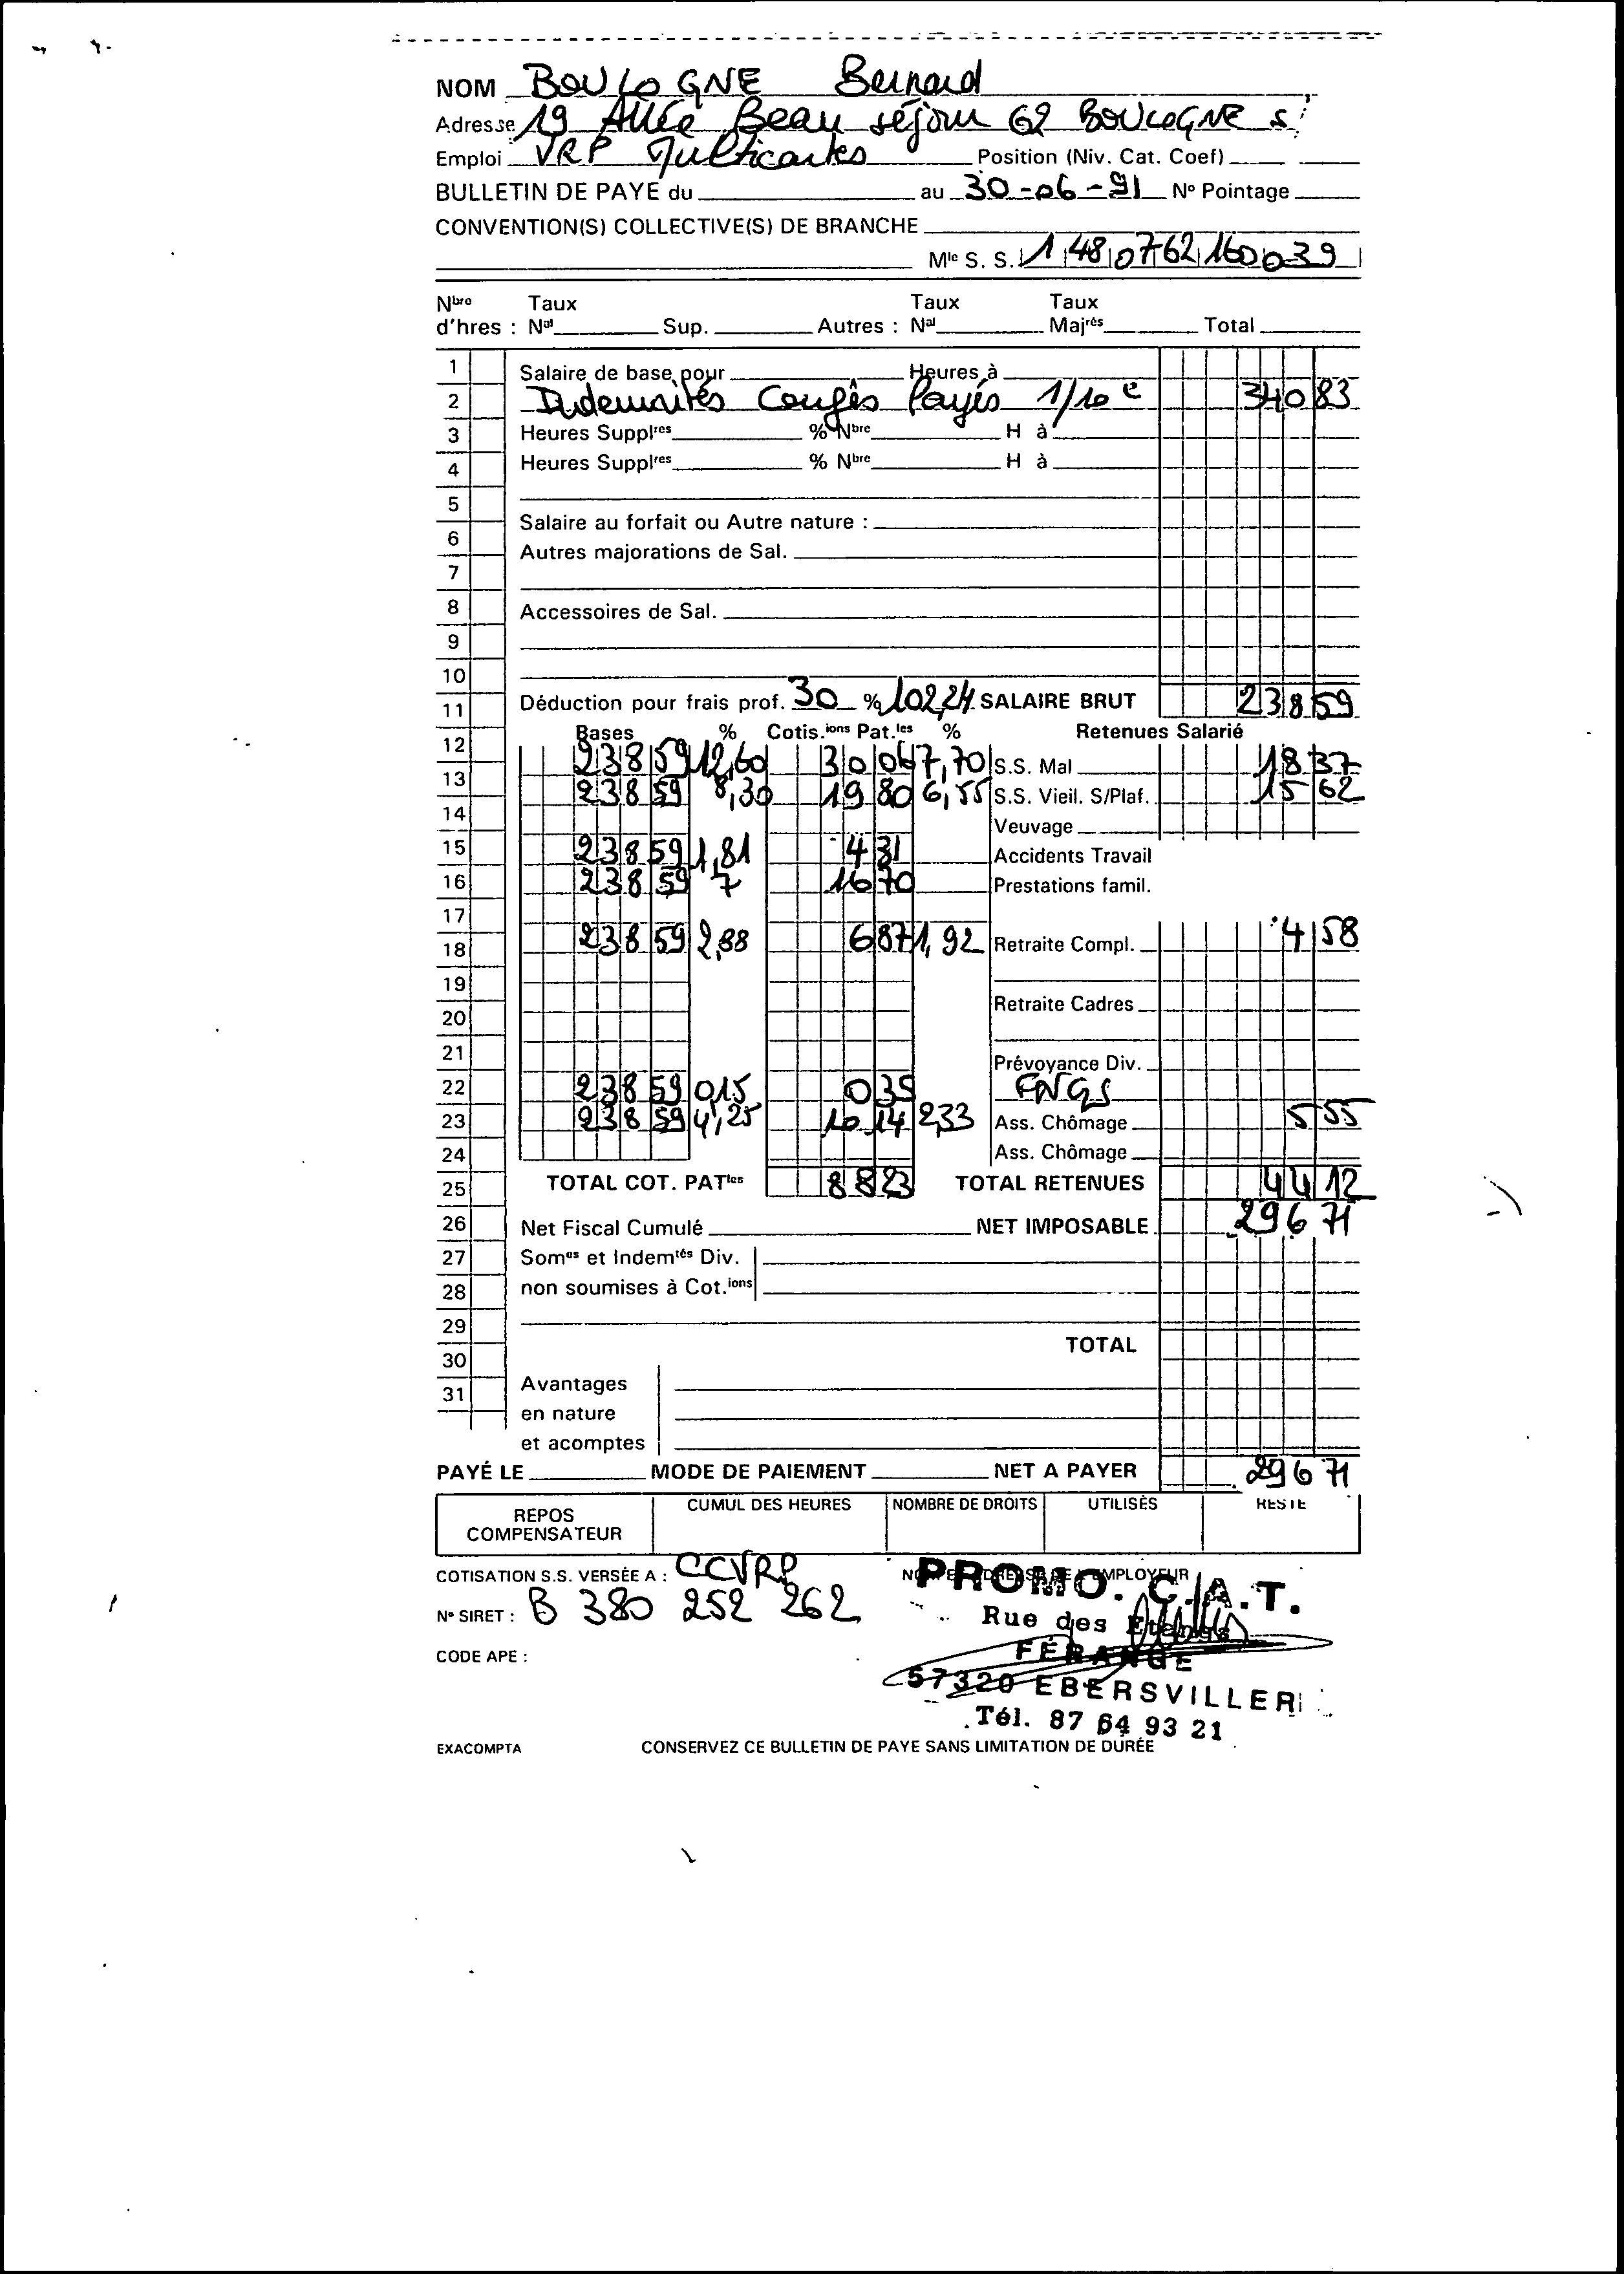 NOM BOULOGNE Bernard
Adresse 19 Allée Beau séjour 62 BOULOGNE S/
Emploi VRP Multicartes Position (Niv. Cat. Coef)
BULLETIN DE PAYE du au 30-06-91 Nº Pointage
CONVENTION(S) COLLECTIVE(S) DE BRANCHE
Mle S. S. 1 48 07 62 160 039
Nbre Taux Taux Taux
d'hres : Nal Sup. Autres : Nal Majrés Total
1 Salaire de base pour Heures à
2 Indemnités Congés Payés 1/10e 340 83
3 Heures Supplres % Nbre H à
4 Heures Supplres % Nbre H à
5
6 Salaire au forfait ou Autre nature :
7 Autres majorations de Sal.
8 Accessoires de Sal.
9
10
11 Déduction pour frais prof. 30 % 102,24 SALAIRE BRUT 238 59
12 Bases % Cotis.ions Pat.les % Retenues Salarié
238 59 12,60 30 06 7,70 S.S. Mal 18 37
13 238 59 8,30 19 80 6,55 S.S. Vieil. S/Plaf. 15 62
14 Veuvage
15 238 59 1,81 4 31 Accidents Travail
16 238 59 7 16 70 Prestations famil.
17
18 238 59 2,88 6 87 1,92 Retraite Compl. 4 58
19
20 Retraite Cadres
21 Prévoyance Div.
22 238 59 0,15 0 35 FNGS
23 238 59 4,25 10 14 2,33 Ass. Chômage 5 55
24 Ass. Chômage
25 TOTAL COT. PATles 88 23 TOTAL RETENUES 44 12
26 Net Fiscal Cumulé NET IMPOSABLE 296 71
27 Somes et Indemtés Div.
28 non soumises à Cot.ions
29
30 TOTAL
31 Avantages
en nature
et acomptes
PAYÉ LE MODE DE PAIEMENT NET A PAYER 296 71
REPOS COMPENSATEUR CUMUL DES HEURES NOMBRE DE DROITS UTILISÉS RESTE
COTISATION S.S. VERSÉE A : CCVRP
Nº SIRET : B 380 252 262
CODE APE :
PROMO. C.A.T.
Rue des Etangs
FÉRANGE
57320 EBERSVILLER
Tél. 87 64 93 21
EXACOMPTA CONSERVEZ CE BULLETIN DE PAYE SANS LIMITATION DE DURÉE